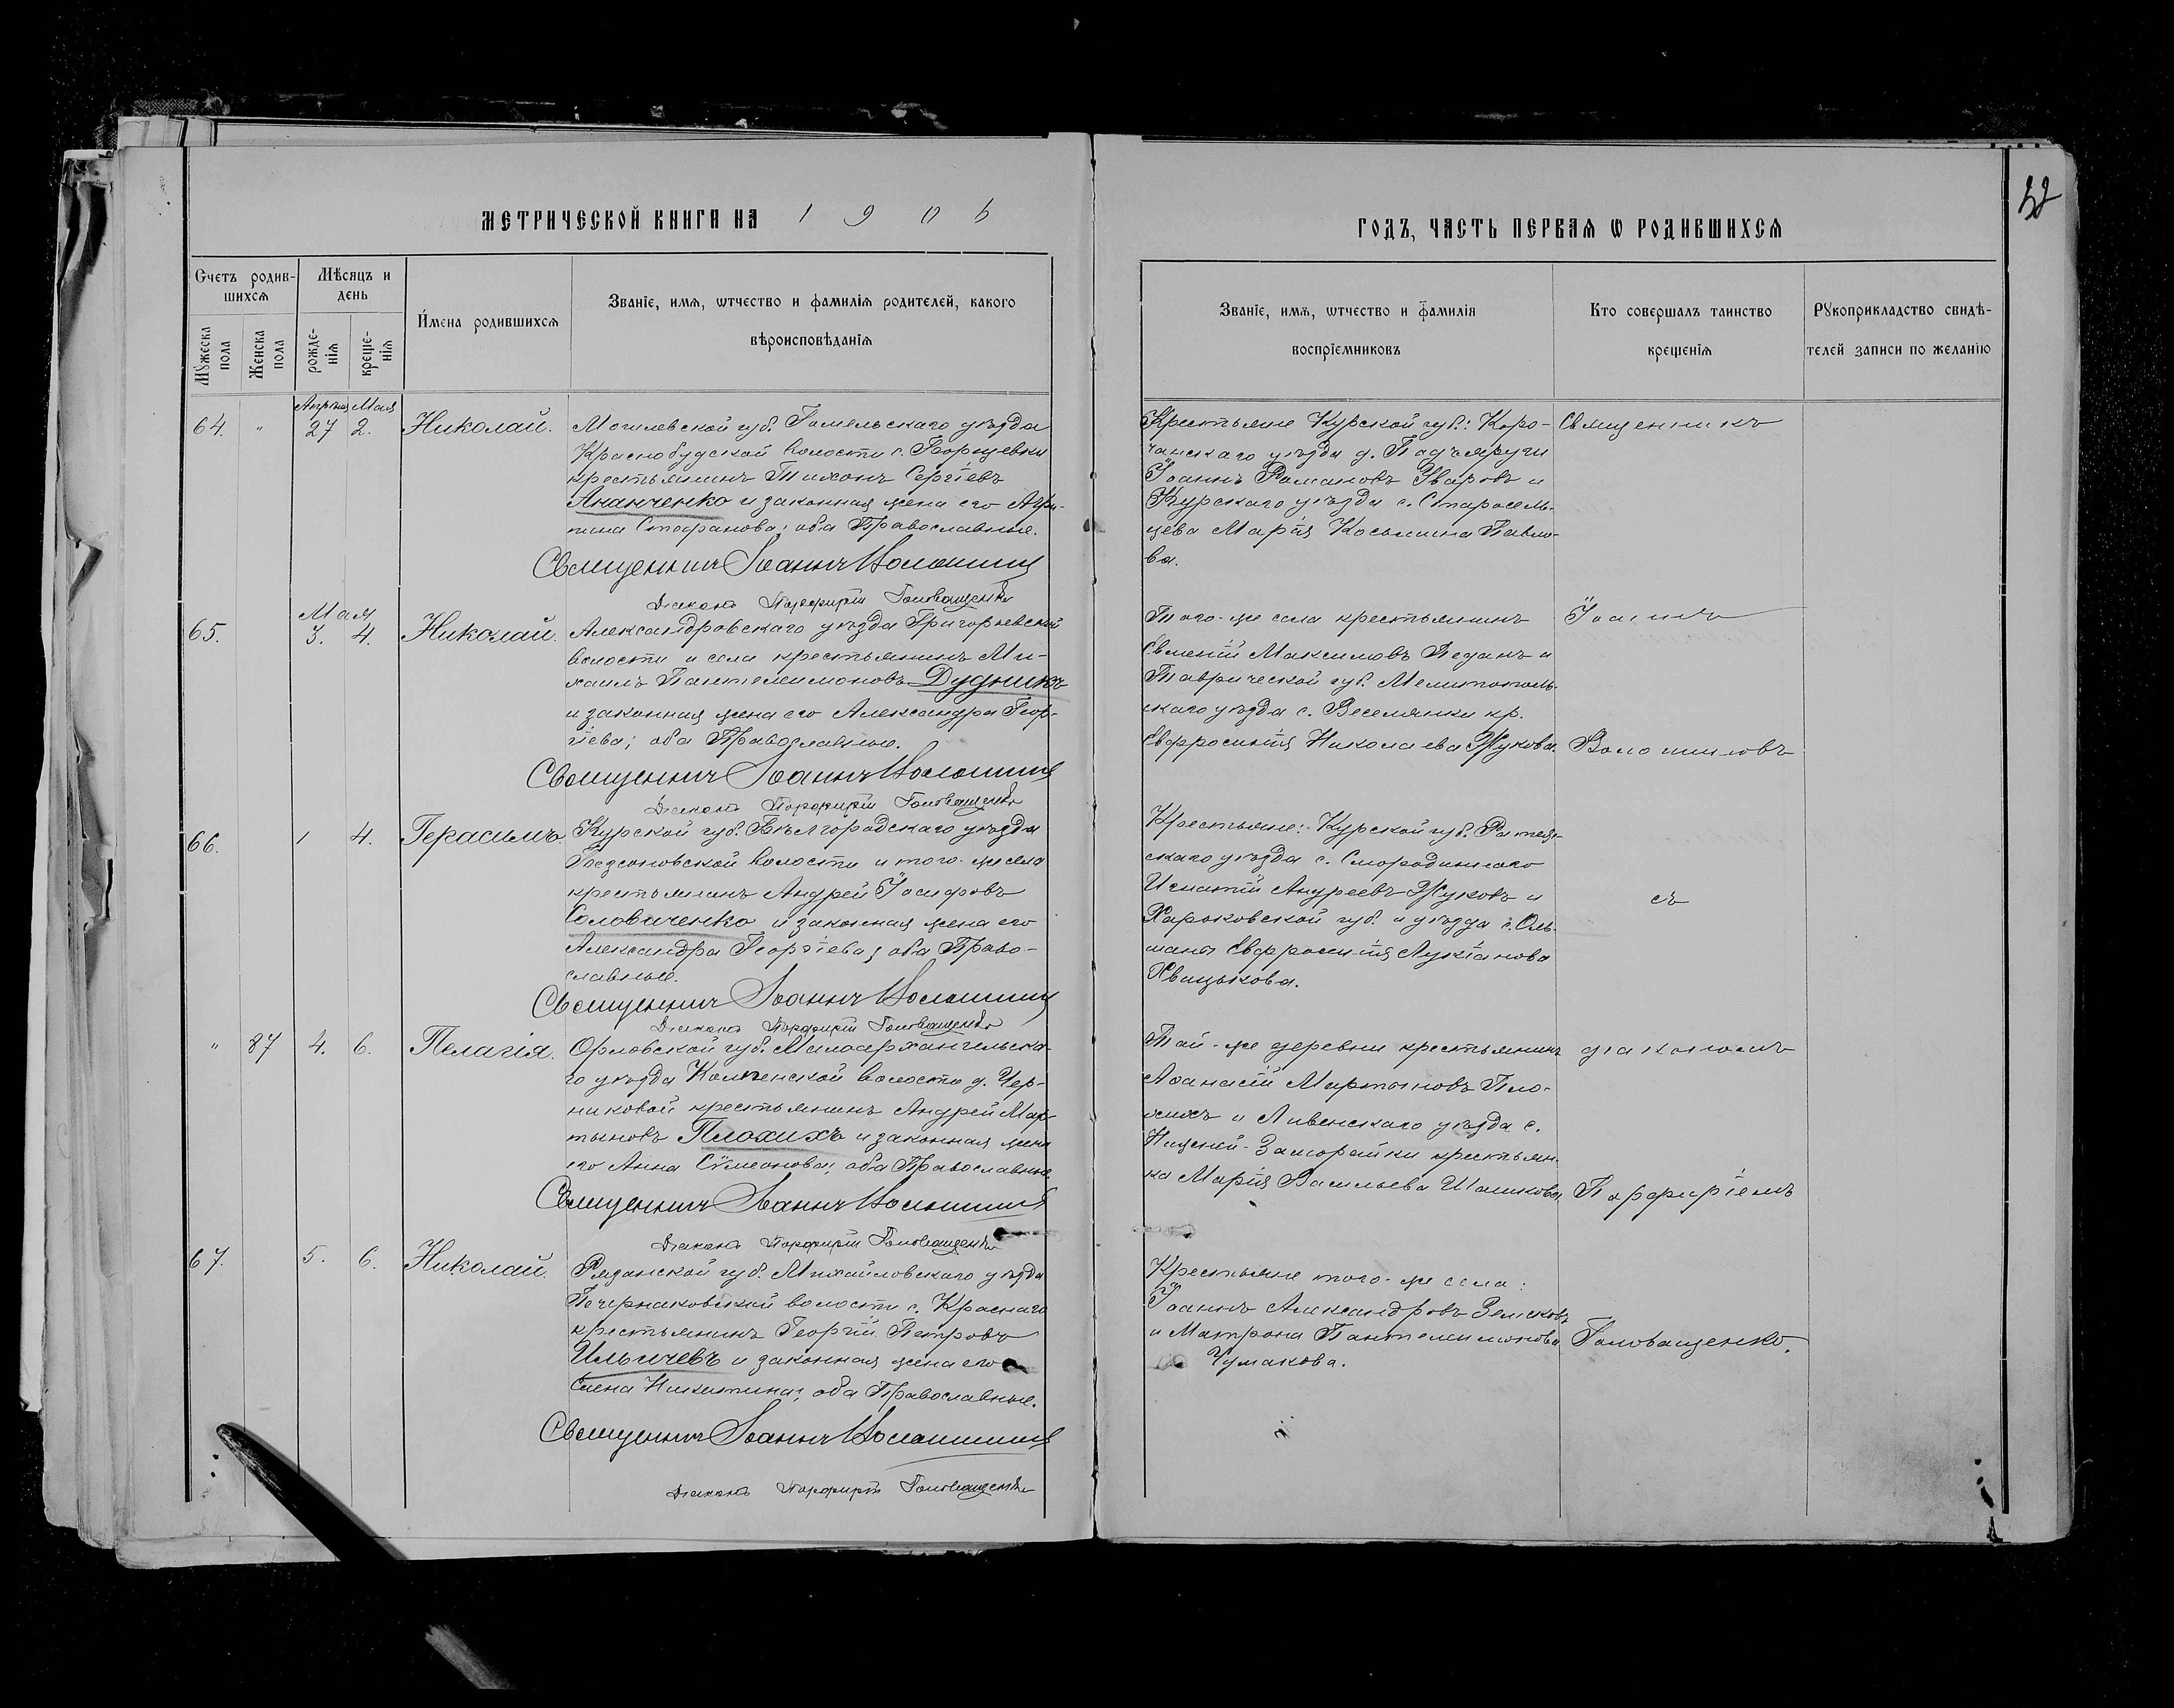 МЕТРИЧЕСКОЙ КНИГИ НА 1906
ГОДЪ, ЧАСТЬ ПЕРВАЯ Ѡ РОДИВШИХСЯ
Счетъ родив-
шихся
Мѣсяцъ и
день
Имена родившихся
Званіе, имя, ѡтчество и фамилія родителей, какого
вѣроисповѣданія
Мужеска пола
Женска пола
рожде-
нія
креще-
нія
Званіе, имя, ѡтчество и фамилія
воспріемниковъ
Кто совершалъ таинство
крещенія
Рукоприкладство свидѣ-
телей записи по желанію
Апрѣля Мая
64. " 27 2. Николай.
Могилевской губ. Гомельскаго уѣзда
Краснобудской волости с. Борщевки
крестьянинъ Тихонъ Сергіевъ
Ананченко и законная жена его Агри-
пина Стефанова; оба Православные.
Священникъ Іоаннъ Волошинъ
Діаконъ Порфирій Головащенко
Крестьяне Курской губ.: Коро-
чанскаго уѣзда д. Подъяруги
Іоаннъ Романовъ Уваровъ и
Курскаго уѣзда с. Старосель-
цева Марія Косьмина Павло-
ва.
Священникъ
Мая
65. 3. 4. Николай.
Александровскаго уѣзда Григорьевской
волости и села крестьянинъ Ми-
хаилъ Пантелеимоновъ Дудникъ
и законная жена его Александра Геор-
гіева; оба Православные.
Священникъ Іоаннъ Волошинъ
Діаконъ Порфирій Головащенко
Того-же села крестьянинъ
Евменій Максимовъ Педанъ и
Таврической губ. Мелитополь-
скаго уѣзда с. Веселянки кр.
Евфросинія Николаева Жукова.
Іоаннъ
Волошиновъ
66. 1 4. Герасимъ.
Курской губ. Бѣлгородскаго уѣзда
волости и того-же села
крестьянинъ Андрей Іосифовъ
Соловиченко и законная жена его
Александра Георгіева; оба Право-
славные.
Священникъ Іоаннъ Волошинъ
Діаконъ Порфирій Головащенко
Крестьяне: Курской губ.
скаго уѣзда с. Смородиннаго
Игнатій Андреевъ Жуковъ и
Харьковской губ. и уѣзда с. Оль-
шаны Евфросинія Лукіанова
Хвицькова.
съ
" 87 4. 6. Пелагія.
Орловской губ. Малоархангельска-
го уѣзда Колпенской волости д. Чер-
никовой крестьянинъ Андрей Мар-
тыновъ Плохихъ и законная жена
его Анна Сѵмеонова; оба Православные.
Священникъ Іоаннъ Волошинъ
Діаконъ Порфирій Головащенко
Той-же деревни крестьянинъ
Аѳанасій Мартыновъ Пло-
хихъ и Ливенскаго уѣзда с.
Нижней-Заморайки крестьян-
ка Марія Васильева Шашкова.
діакономъ
Порфиріемъ
67. 5. 6. Николай.
Рязанской губ. Михайловскаго уѣзда
Печерниковской волости с. Краснаго
крестьянинъ Георгій Петровъ
Ильичевъ и законная жена его
Елена Никитина; оба Православные.
Священникъ Іоаннъ Волошинъ
Діаконъ Порфирій Головащенко
Крестьяне того-же села:
Іоаннъ Александровъ Земсковъ
и Матрона Пантелеимонова
Чумакова.
Головащенко.